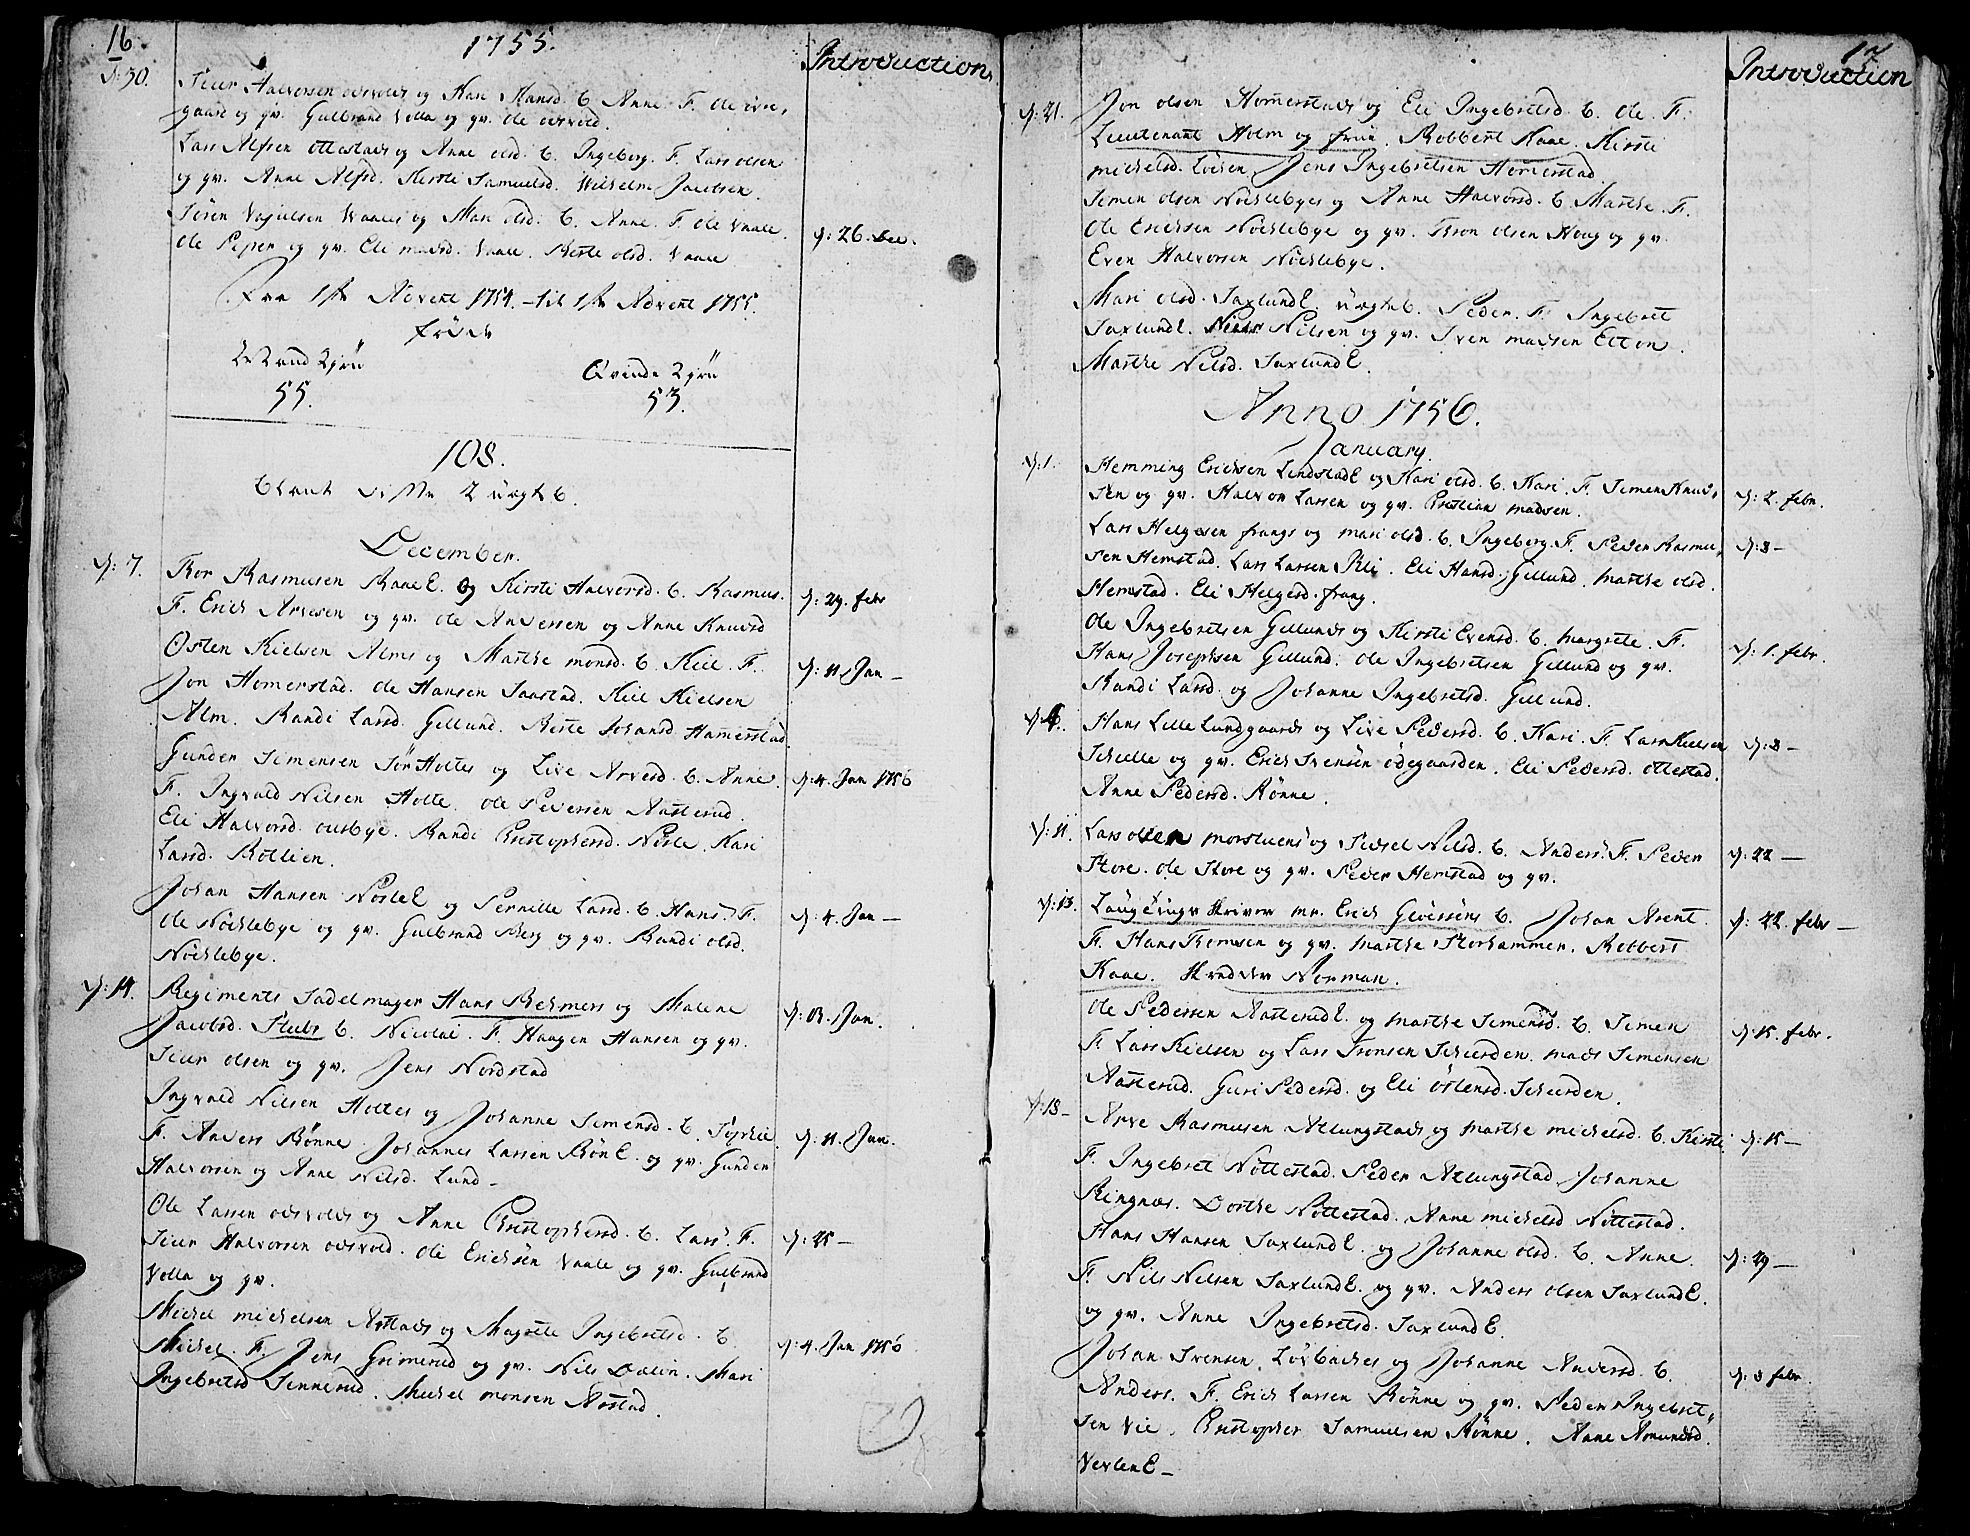 16.
1755.
Introduction
d: 30.
Siur Halvorsen odsvolds og Kari Hansd. b. Anne. F. Ole
gaard og qv. Gulbrand Vella og qv. Ole odsvold.
Lars Alfsen ottestads og Anne olsd. b. Ingeborg. F. Lars olsen
og qv. Anne Alfsd. Kirsti Samuelsd. Wilhelm Jacobsen.
Sören Waales og Mari olsd. b. Anne. F. Ole Vaale.
Ole og qv. Eli Vaale. Berte olsd. Vaale
d: 26. Dec.
Fra 1ste Advent 1754. til 1ste Advent 1755.
födde
Mand Kjön
Qvinde Kjön
55.
53.
108.
blant disse 2 uægte b.
December.
d: 7.
Tor Rasmusen og Kirsti Halvorsd. b. Rasmus.
F. Erich Arvesen og qv. Ole Andersen og Anne Knudsd
d: 29. febr
Østen Kielsen Alms og Marthe monsd. b. Kiel. F.
Jon Homerstad. Ole Hansen Saastad. Kiel Kielsen
Alm. Randi Larsd. Gillund. Berte Johansd. Hamerstad
d: 11. Jan –
Gunder Simensen SörHoltes og Live Arvesd. b. Anne
F. Ingvald Nilsen Holte. Ole Pedersen Aasterud.
Eli Halvorsd. ousbye. Randi Christophersd. Kari
Larsd. Rollien.
d: 4. Jan 1756
Johan Hansen og Pernille Larsd. b. Hans. F.
Ole Nöchlebye og qv. Gulbrand Berg og qv. Randi olsd.
Nöchlebye.
d: 4. Jan –
d: 14.
Regiments Sadelmager Hans Behmers og Malene
Jacobsd. Stubs b. Nicolai. F. Haagen Hansen og qv.
Siur olsen og qv. Jens Nordstad
d: 13. Jan.
Ingvald Nilsen Holtes og Johanne Simensd. b. Sophie
F. Anders Rönne. Johannes Larsen og qv. Gunder
Halvorsen og Anne Nilsd. Lund –
d: 11. Jan.
Ole Larsen odsvolds og Anne Christophersd. b. Lars. F.
Siur Halvorsen odsvold. Ole Erichsön Vaale og qv. Gulbrand
Vella og qv.
d: 25 –
Michel michelsen og Magrete Ingebretsd. b.
Michel. F. Jens Grimerud og qv. Nils Dalin. Mari
Ingebretsd Sennerud. Michel monsen
d: 4. Jan 1756
17
Introduction
d: 21.
Jon olsen Homerstads og Eli Ingebretsd. b. Ole. F.
Lieutenant Holm og frue. Robbert Kaae. Kirsti
michelsd. Jens Ingebretsen Homerstad.
Simen olsen Nöchlebyes og Anne Halvorsd. b. Marthe. F.
Ole Erichsen Nöchlebye og qv. Tron olsen Houg og qv.
Even Halvorsen Nöchlebye.
Mari olsd. Saxlund uægte b. Peder. F. Ingebret
Saxlund. Nilsen og qv. Sven madsen Etton.
Marthe Nilsd. Saxlund.
Anno 1756.
January.
d: 1.
Hemming Erichsen Lindstad og Kari olsd. b. Kari. F. Simen Knud-
sen og qv. Halvor Larsen og qv. Christian madsen.
d: 2. febr.
Lars Helgesen frangs og mari olsd. b. Ingeborg. F. Peder Rasmu-
sen Hemstad. Lars Larsen Eli Hansd. Gillund. marthe olsd.
Hemstad. Eli Helgesd. frang.
d: 8 –
Ole Ingebretsen Gillunds og Kirsti Evensd. b. margrete. F.
Hans Josephsen Gillund. Ole Ingebretsen Gillund og qv.
Randi Larsd. og Johanne Ingebretsd. Gillund.
d: 1. febr.
d: 6.
Hans Lille Lundgaards og Live Pedersd. b. Kari. F. Lars Kielsen
og qv. Erich Svensen ödegaarden. Eli Pedersd. ottestad.
Anne Pedersd. Rönne.
d: 8 –
d: 11.
Lars olsen morstuens og Sidsel Nilsd. b. Anders. F. Peder
Store. Ole Store og qv. Peder Hemstad og qv.
d: 22 –
d: 13.
Laugtings Skriver mr. Erich b. Johan Arent.
F. Hans Tromsen og qv. marthe Storhammer. Robbert
Kaae. Skredder Norman.
d: 22. febr –
Ole Pedersen Aasterud og marthe Simensd. b. Simen
F. Lars Kielsen og Lars Tronsen mads Simensen
Aasterud. Guri Pedersd. og Eli östensd.
d: 15. febr.
d: 18 –
Arve Rasmusen Atlungstads og marthe michelsd. b. Kirsti.
F. Ingebret Nöttestad. Peder Atlungstad. Johanne
Ringnæs. Dorthe Nöttestad. Anne michelsd Nöttestad.
d: 15 –
Hans Hansen Saxlund og Johanne olsd. b. Anne.
F. Nils Nilsen Saxlund og qv. Anders olsen Saxlund
og qv. Anne Ingebretsd. Saxlund.
d: 29 –
Johan Svensen Lövbaches og Johanne Andersd. b.
Anders. F. Erich Larsen Rönne og qv. Peder Ingebret-
sen Vie. Christopher Samuelsen Rönne. Anne Amundsd.
d: 8 febr.